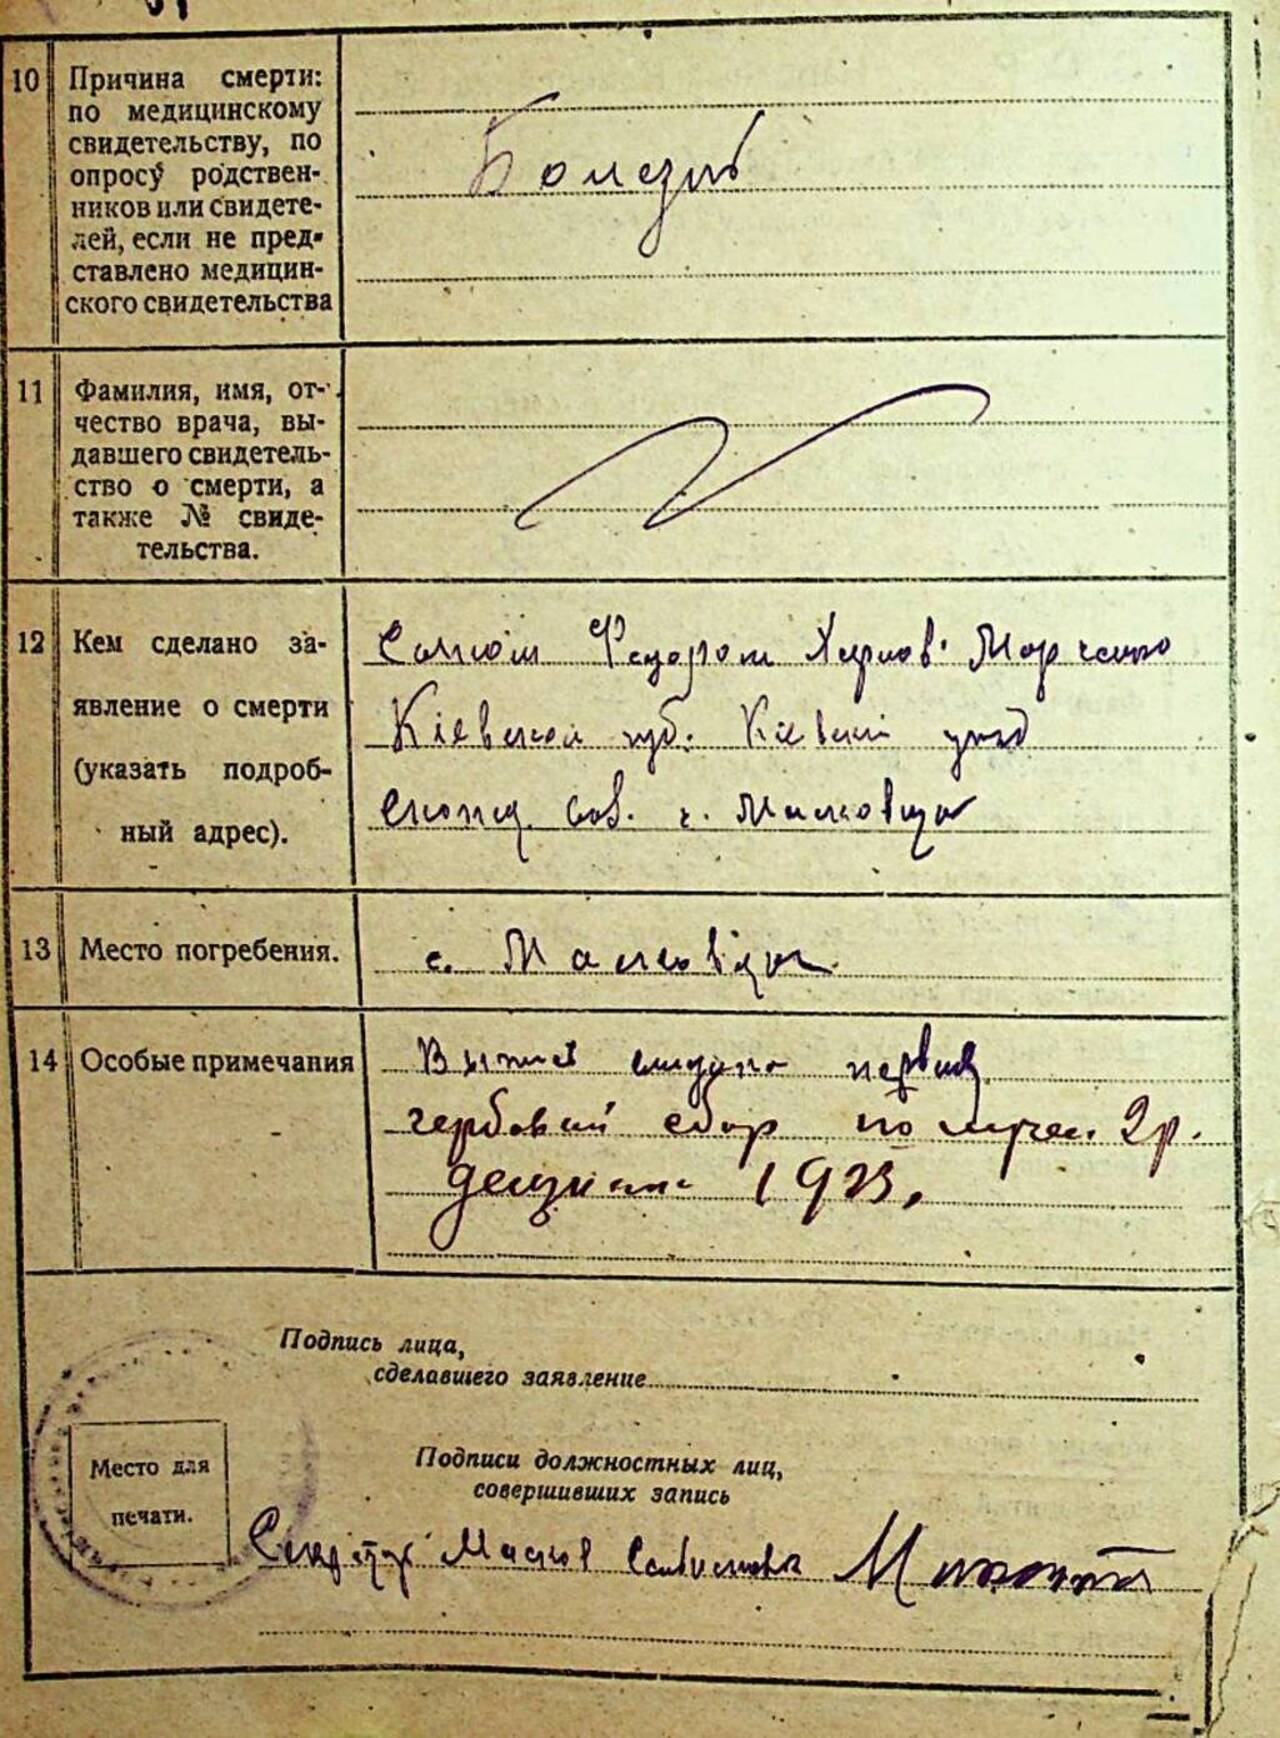 10 Причина смерти:
по медицинскому
свидетельству, по
опросу родствен-
ников или свидете-
лей, если не пред-
ставлено медицин-
ского свидетельства
Болезнь
11 Фамилия, имя, от-
чество врача, вы-
давшего свидетель-
ство о смерти, а
также № свиде-
тельства.
12 Кем сделано за-
явление о смерти
(указать подроб-
ный адрес).
Сыном Федором Марченко
Кіевской губ. Кіевский уезд
с.
13 Место погребения.
с.
14 Особые примечания
гербовый сбор 2р.
1923,
Подпись лица,
сделавшего заявление
Место для
печати.
Подписи должностных лиц,
совершивших запись
Секретарь